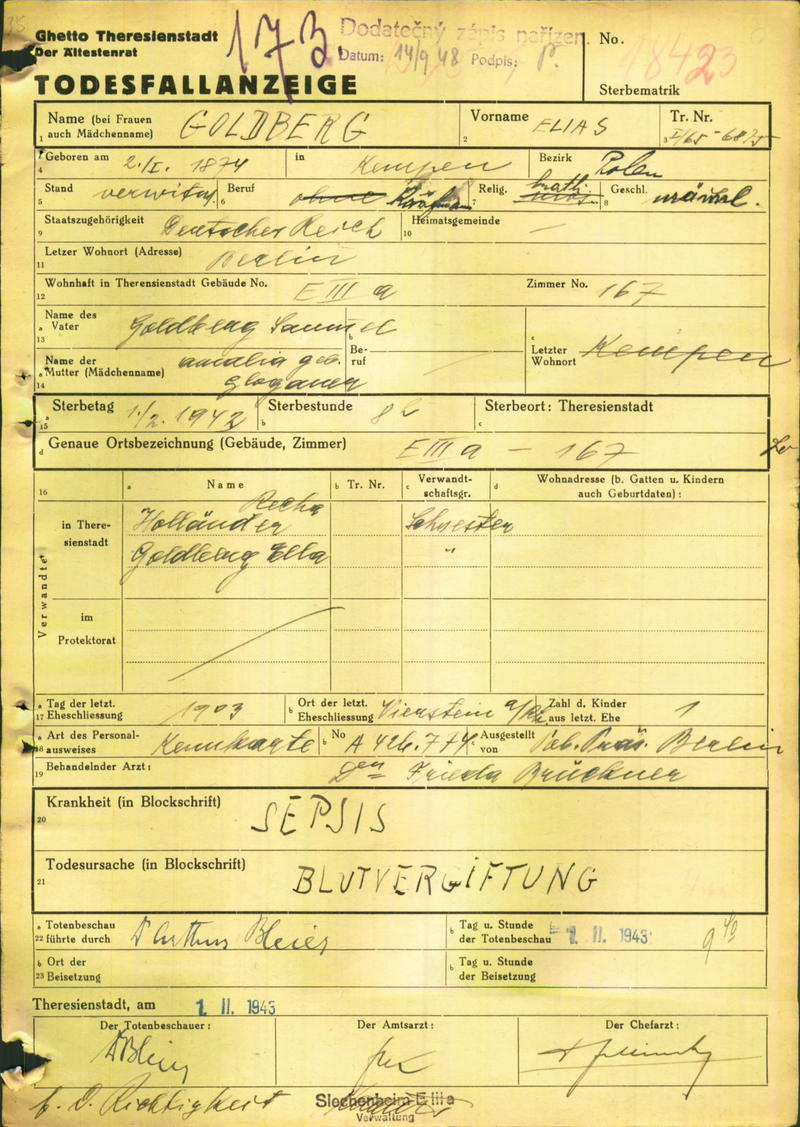 173.
Dodatečný zápis nařízen
Datum: 14/9 48 Podpis:
Ghetto Theresienstadt
Der Ältestenrat
TODESFALLANZEIGE
No. 18423
Sterbematrik
Name (bei Frauen auch Mädchenname) GOLDBERG Vorname ELIAS Tr. Nr. I/65-6875
1 2 3
Geboren am 2./I. 1874 in Kempen Bezirk Polen
4
Stand verwitw. Beruf ohne Kaufmann Relig. mos. Geschl. männl.
5 6 7 8
Staatszugehörigkeit Deutsches Reich Heimatsgemeinde —
9 10
Letzer Wohnort (Adresse) Berlin
11
Wohnhaft in Theresienstadt Gebäude No. E III a Zimmer No. 167
12
Name des Vater Goldberg Samuel Beruf — Letzter Wohnort Kempen
13
Name der Mutter (Mädchenname) Amalia geb. Gloganer
14
Sterbetag 1./2. 1943 Sterbestunde 8 h Sterbeort: Theresienstadt
15
Genaue Ortsbezeichnung (Gebäude, Zimmer) E III a - 167
16 Name Tr. Nr. Verwandtschaftsgr. Wohnadresse (b. Gatten u. Kindern auch Geburtdaten):
Verwandte
in Theresienstadt Holländer Recha Schwester
Goldberg Ella "
im Protektorat
Tag der letzt. Eheschliessung 1903 Ort der letzt. Eheschliessung Nierstein a/Rh. Zahl d. Kinder aus letzt. Ehe 1
17
Art des Personalausweises Kennkarte No A 426.774 Ausgestellt von Pol. Präs. Berlin
18
Behandelnder Arzt: Frieda Brückner
19
Krankheit (in Blockschrift) SEPSIS
20
Todesursache (in Blockschrift) BLUTVERGIFTUNG
21
Totenbeschau führte durch Arthur Bleier Tag u. Stunde der Totenbeschau 1. II. 1943 9 40
22
Ort der Beisetzung Tag u. Stunde der Beisetzung
23
Theresienstadt, am 1. II. 1943
Der Totenbeschauer: Der Amtsarzt: Der Chefarzt:
f. d. Richtigkeit Siechenheim E III a
Verwaltung